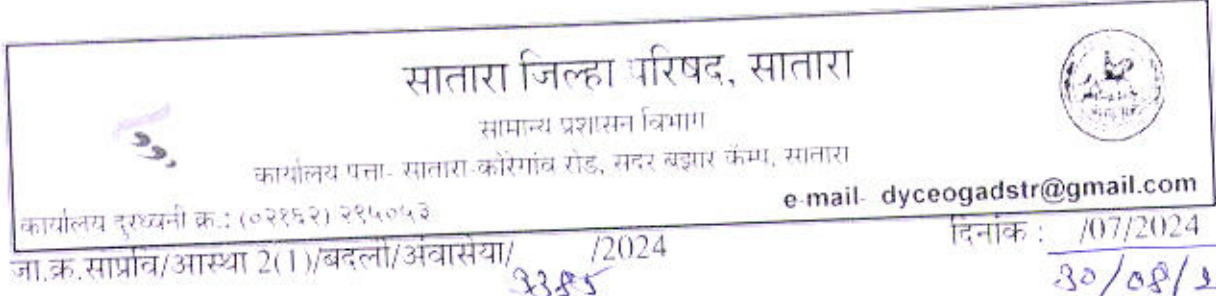 सातारा जिल्हा परिषद, सातारा
सामान्य प्रशासन विभाग
कार्यालय पत्ता- सातारा-कोरेगांव रोड, सदर बझार कॅम्प, सातारा
कार्यालय दुरध्वनी क्र.: (०२१६२) २९५०५३
e-mail- dyceogadstr@gmail.com
जा.क्र.साप्रवि/आस्था 2(1)/बदली/अंवासेया/ /2024
दिनांक : /07/2024